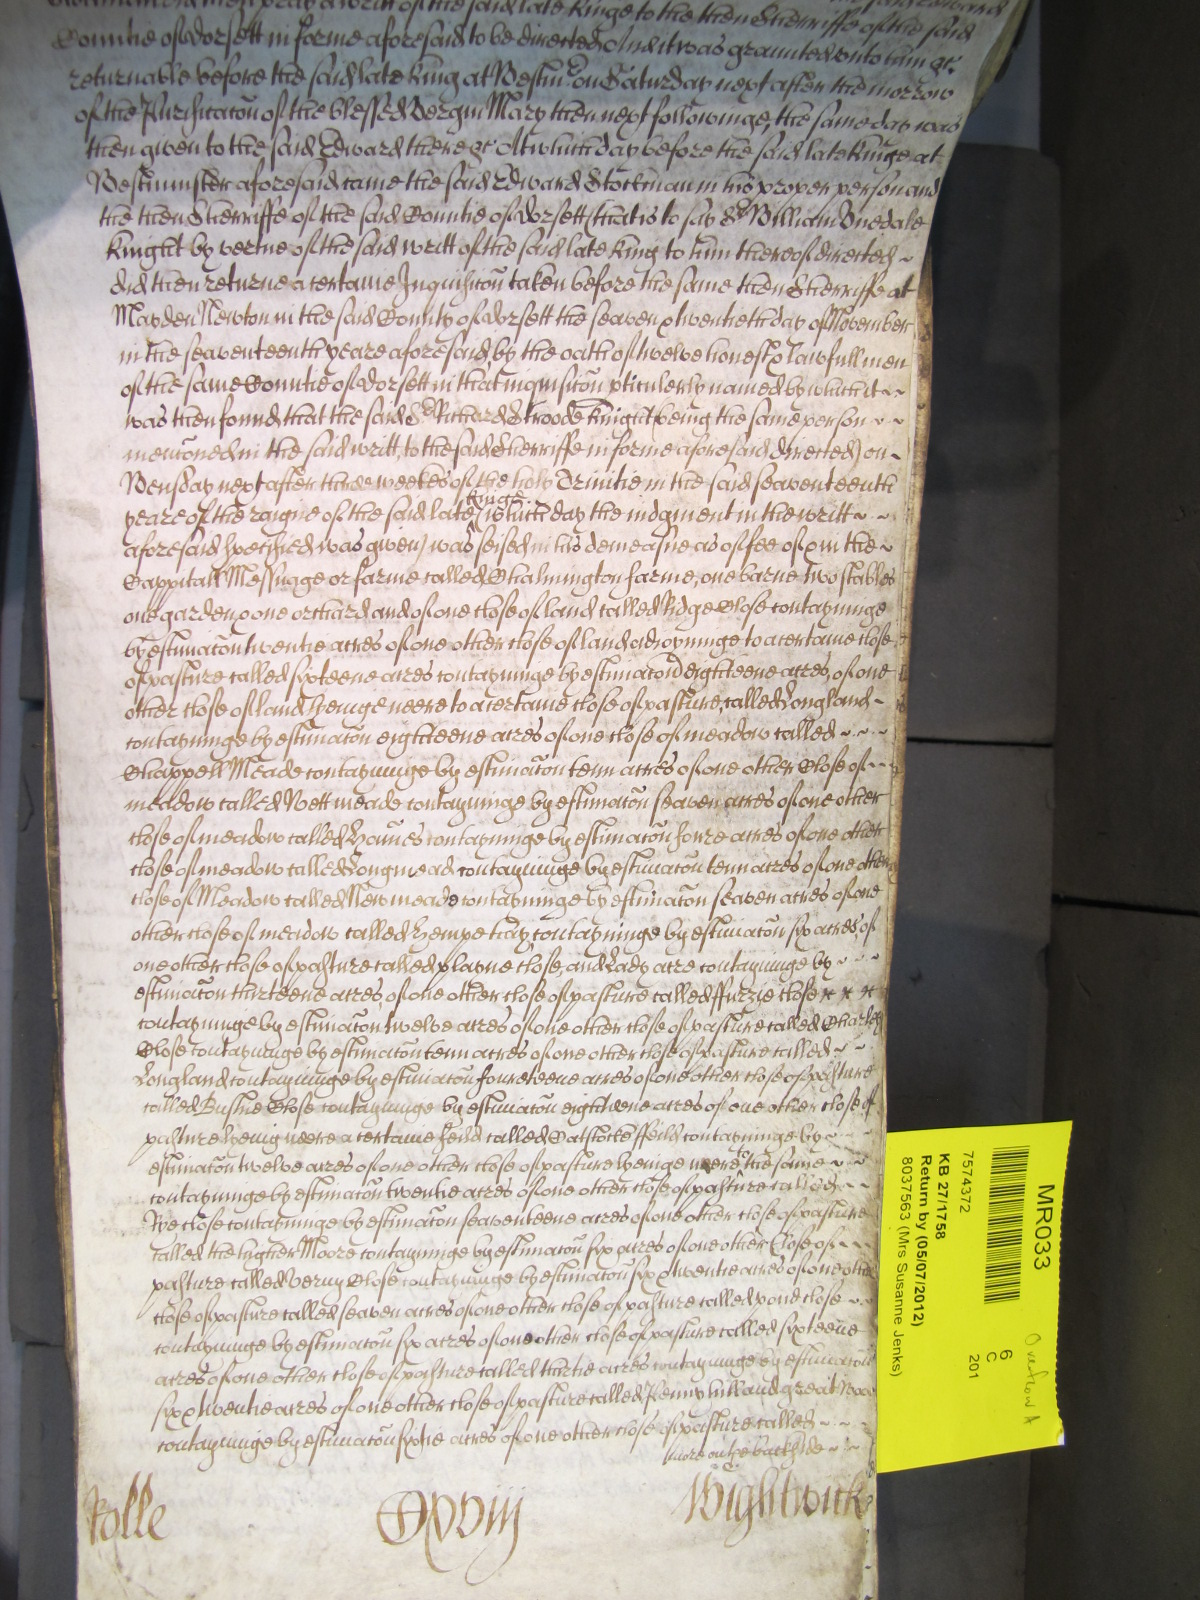 the said late Kinge to the then Sherriffe of the said
Countie of Dorsett in forme aforesaid to be directed And it was graunted unto him &c
returnable before the said late King at Westm̃ on Saturday next after the morrow
of the Purificac̃on of the blessed Vergin Mary then next followinge, the same day was
then given to the said Edward there &c At which day before the said late Kinge at
Westminster aforesaid came the said Edward Stockman in his proper person and
the then Sherriffe of the said Countie of Dorsett (that is to say Sr William Uvedale
Knight by vertue of the said writt of the said late King to him thereof directed ~
did then returne a certaine Inquisic̃on taken before the same then Sherriffe at
Mayden Newton in the said County of Dorsett the seaven & twentieth day of November
in the seaventeenth yeare aforesaid, by the oath of twelve honest & lawfull men
of the same Countie of Dorsett in that inquisic̃on p̱ticulerly named by which it ~ ~
was then found that the said Sr Richard Stroode Knight being the same person ~ ~
menc̃oned in the said writt, to the said Sherriffe in forme aforesaid directed) on ~
Wensday next after three weekes of the holy Trinitie in the said seaventeenth
yeare of the raigne of the said late Kinge (which day the iudgment in the writt ~ ~
aforesaid specified was given) was seised in his demeasne as of fee of & in the ~
Cappitall Messuage or farme called Chalmington farme, one barne two stables
one garden & one orchard and of one close of land called Ridge Close contayninge
by estimac̃on twentie acres of one other close of land adioyninge to a certaine close
of pasture called sixteene acres contayninge by estimac̃on eighteene acres, of one
other close of land lyenge neere to a certaine close of pasture, called Longland ~
contayninge by estimac̃on eighteene acres of one close of meadow called ~ ~ ~
Chappell Meade contayninge by estimac̃on tenn acres of one other Close of ~ ~
meadow called Wett meade contayninge by estimac̃on seaven acres of one other
close of meadow called Hames contayninge by estimac̃on foure acres of one other
close of meadow called Longmead contayninge by estimac̃on tenn acres of one other
close of Meadow called New meade contayninge by estimac̃on seaven acres of one
other close of meadow called Hempe hay contayninge by estimac̃on six acres of
one other close of pasture called playne close, and Lady acre contayninge by ~ ~ ~
estimac̃on thirteene acres of one other close of pasture called ffurzie close
contayninge by estimac̃on twelve acres of one other close of pasture called
Close contayninge by estimac̃on tenn acres of one other close of pasture called ~ ~
Longland contayninge by estimac̃on fourteene acres of one other close of pasture
called Bushie Close contayninge by estimac̃on eighteene acres of one other close of
pasture lyenig neere a certaine feild called Catstocke ffeild contayninge by ~ ~ ~
estimac̃on twelve acres of one other close of pasture lyenige neere to the same ~ ~
contayninge by estimac̃on twentie acres of one other close of pasture called ~ ~
close contayninge by estimac̃on seaventeene acres of one other close of pasture
called the higher Moore contayninge by estimac̃on six acres of one other Close of ~ ~ ~
pasture called Close contayninge by estimac̃on six & twentie acres of one other
close of pasture called seaven acres of one other close of pasture called pond close ~ ~
contayninge by estimac̃on six acres of one other close of pasture called sixteene
acres of one other close of pasture called thirtie acres contayninge by estimac̃on
six & twentie acres of one other close of pasture called Penny hill and great
contayninge by estimac̃on acres of one other close of pasture called ~ ~ ~
more on the backside ~ ~
Rolle
Wightwick
MR033
7574372
KB 27/1758
Return by (05/07/2012)
8037563 (Mrs Susanne Jenks)
6
C
201
Overflow A